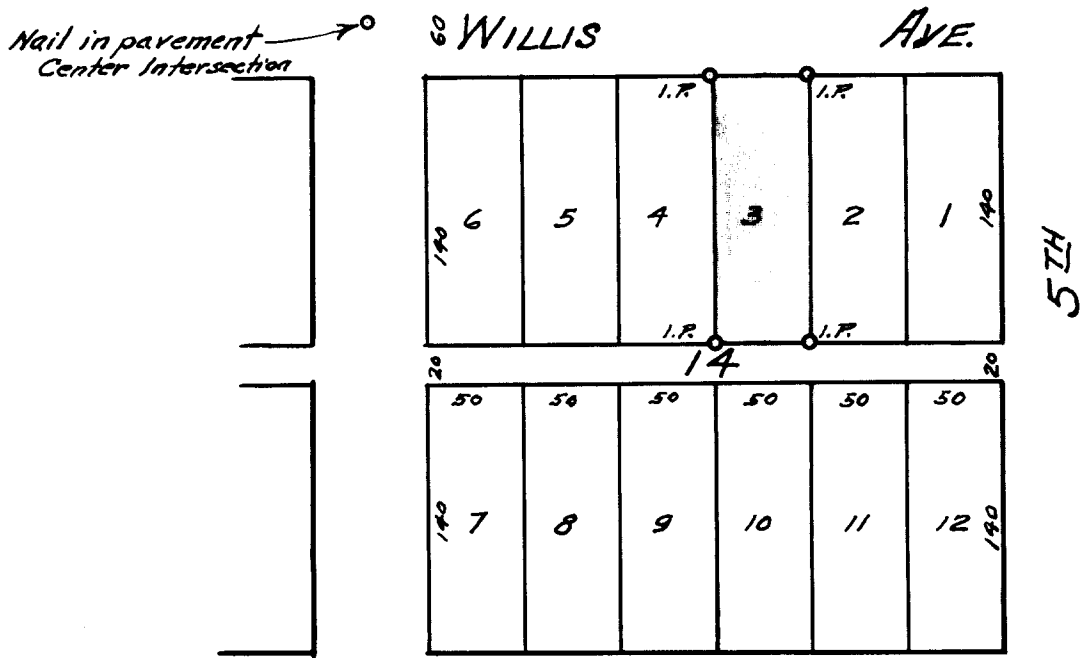 Nail in pavement
Center Intersection
60 WILLIS AVE.
I.P. I.P.
6 5 4 3 2 1
140 140
5TH
I.P. I.P.
20 14 20
50 50 50 50 50 50
7 8 9 10 11 12
140 140